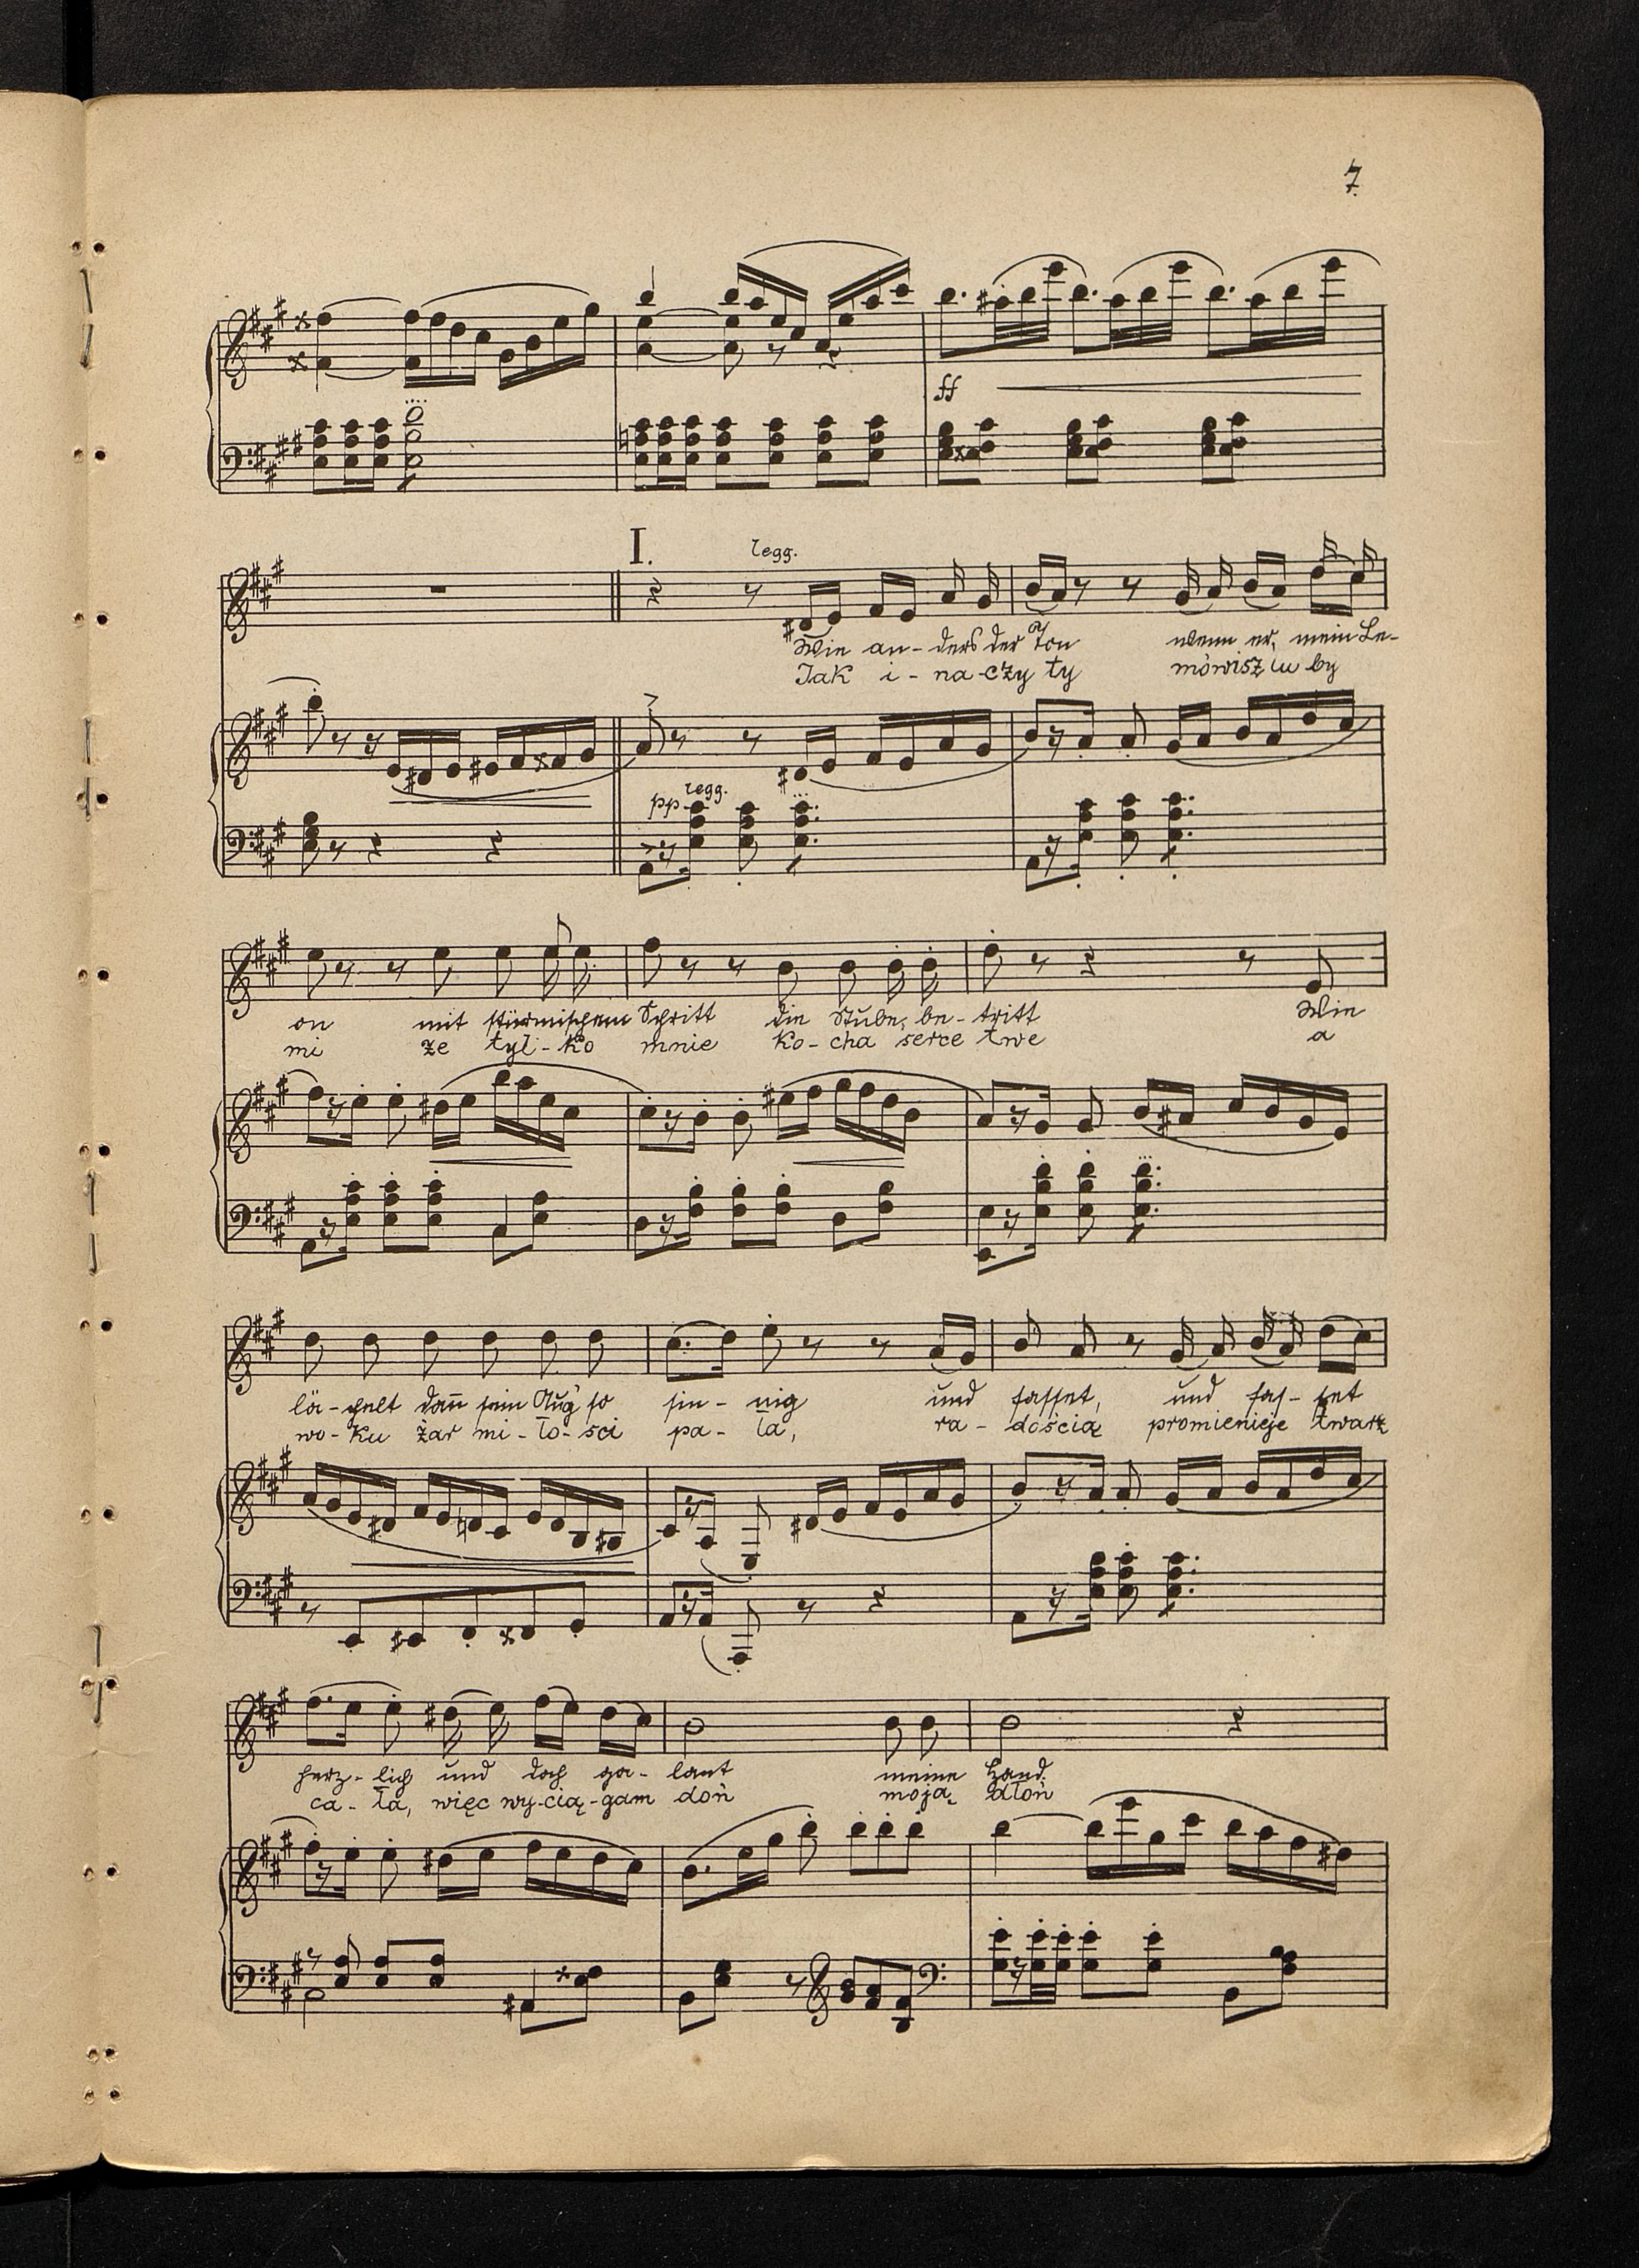 7.
ff
I.
legg.
Wie an-ders der Ton wenn er, mein Le-
Jak i-na-czy ty mówisz lu by
pp legg.
on mit stürmischem Schritt die Stube, be-tritt Wie
mi że tyl-ko mnie ko-cha serce twe a
lä-chelt dan̄ sein Aug' so sin-nig und fasset, und fas-set
wo-ku żar mi-ło-sci pa-ła, ra-dością promienieje twarz
herz-lich und doch ga-lant meine Hand.
ca-ła, więc wy-cią-gam doń moją dłoń